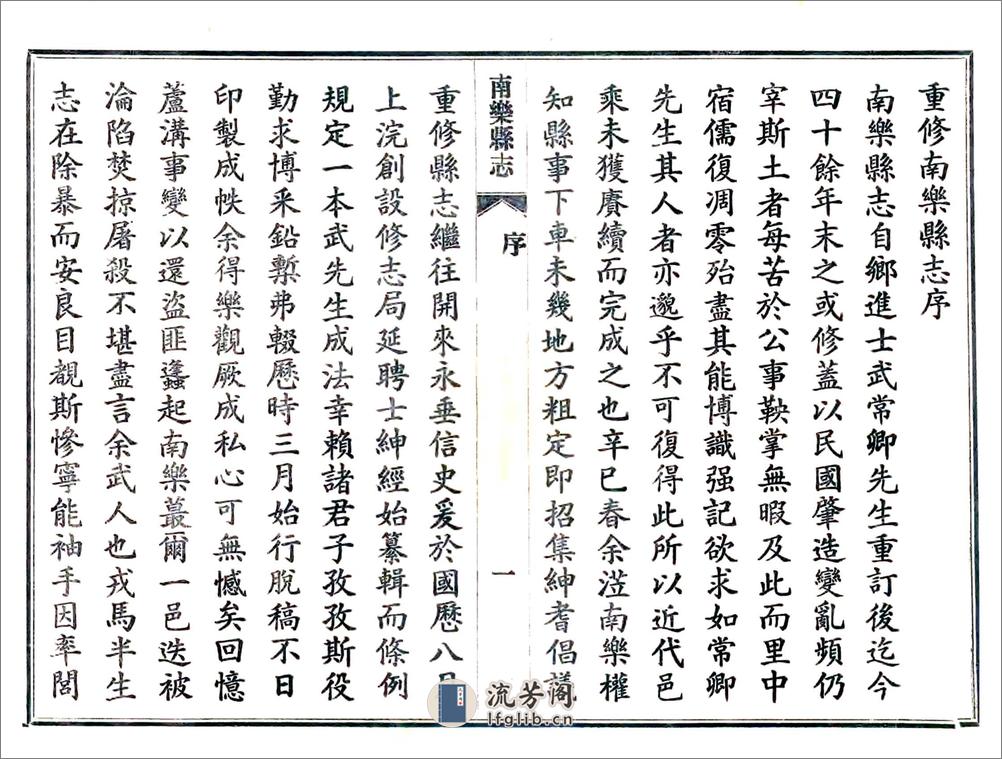 重修南樂縣志序
南樂縣志自鄉進士武常卿先生重訂後迄今
四十餘年末之或修蓋以民國肇造變亂頻仍
宰斯土者每苦於公事鞅掌無暇及此而里中
宿儒復凋零殆盡其能博識强記欲求如常卿
先生其人者亦邈乎不可復得此所以近代邑
乘未獲賡續而完成之也辛巳春余涖南樂權
知縣事下車未幾地方粗定即招集紳耆倡議
南樂縣志
序
一
重修縣志繼往開來永垂信史爰於國曆八月
上浣創設修志局延聘士紳經始纂輯而條例
規定一本武先生成法幸賴諸君子孜孜斯役
勤求博采鉛槧弗輟歷時三月始行脫稿不日
印製成帙余得樂觀厥成私心可無憾矣回憶
蘆溝事變以還盜匪蠭起南樂蕞爾一邑迭被
淪陷焚掠屠殺不堪盡言余武人也戎馬半生
志在除暴而安良目覩斯慘寧能袖手因率閭
流芳阁
lfglib.cn